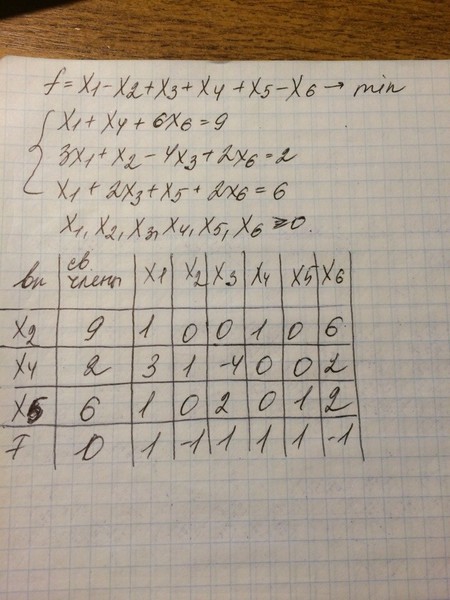 f=x1-x2+x3+x4+x5-x6→min
x1+x4+6x6=9
3x1+x2-4x3+2x6=2
x1+2x3+x5+2x6=6
x1,x2,x3,x4,x5,x6≥0.
бп св члены x1 x2 x3 x4 x5 x6
x2 9 1 0 0 1 0 6
x4 2 3 1 -4 0 0 2
x5 6 1 0 2 0 1 2
F 0 1 -1 1 1 1 -1